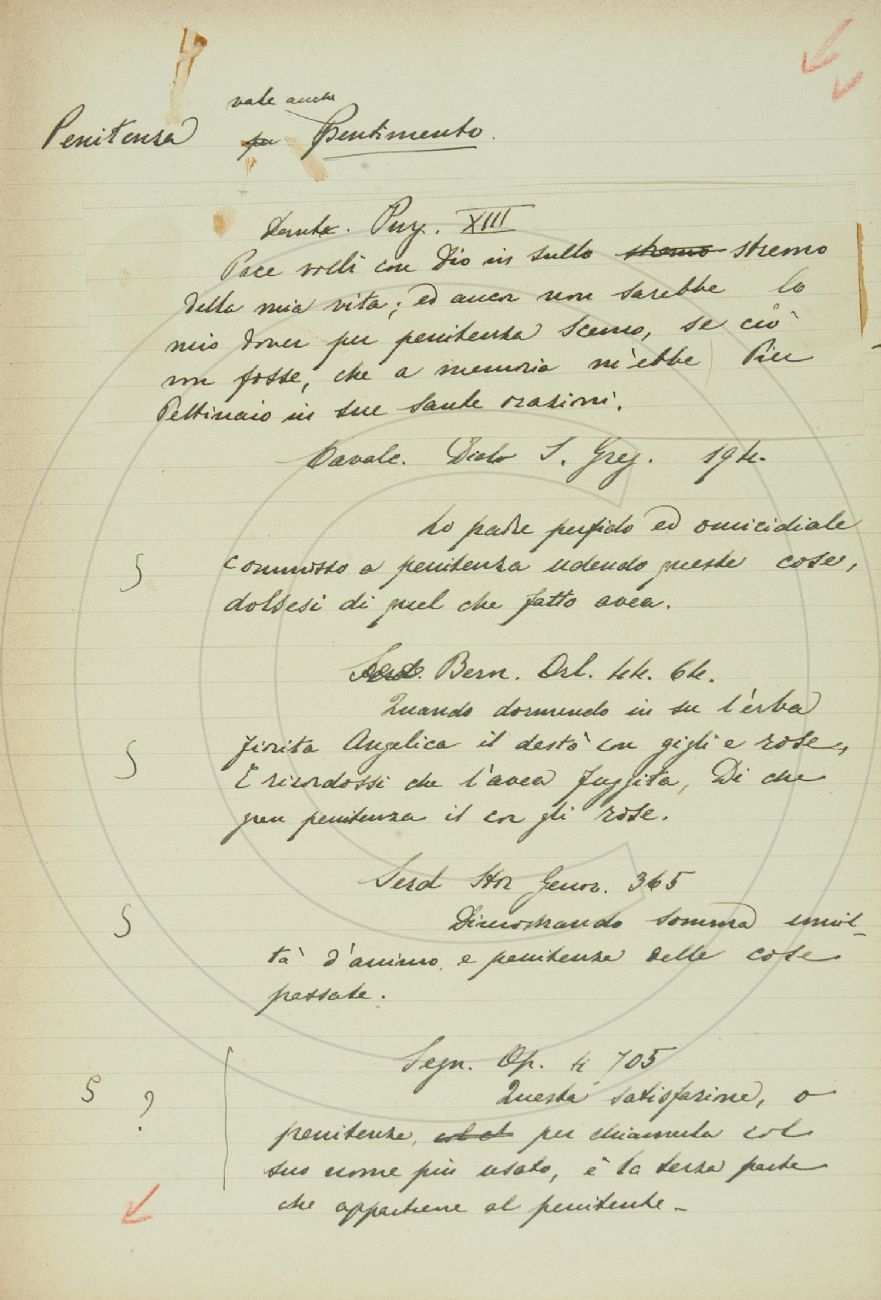 vale anche
Penitenza per Pentimento.
Dante. Purg. XIII
Pace volli con Dio in sullo stremo stremo
della mia vita; ed ancor non sarebbe lo
mio dover per penitenza scemo, se ciò
non fosse, che a memoria m'ebbe Pier
Pettinaio in sue sante orazioni.
Cavalc. Dialo S. Greg. 194.
Lo padre perfido ed omicidiale
commosso a penitenza udendo queste cose,
dolsesi di quel che fatto avea.
Bern. Orl. 44. 64.
Quando dormendo in su l'erba
fiorita Angelica il destò con gigli e rose,
E ricordossi che l'avea fuggita, Di che
gran penitenza il cor gli rose.
Serd Stor Genov. 365
Dimostrando somma umil-
tà d'animo e penitenza delle cose
passate.
Segn. Op. 4 705
?
Questa satisfazione, o
penitenza, col per chiamarla col
suo nome più usato, è la terza parte
che appartiene al penitente -